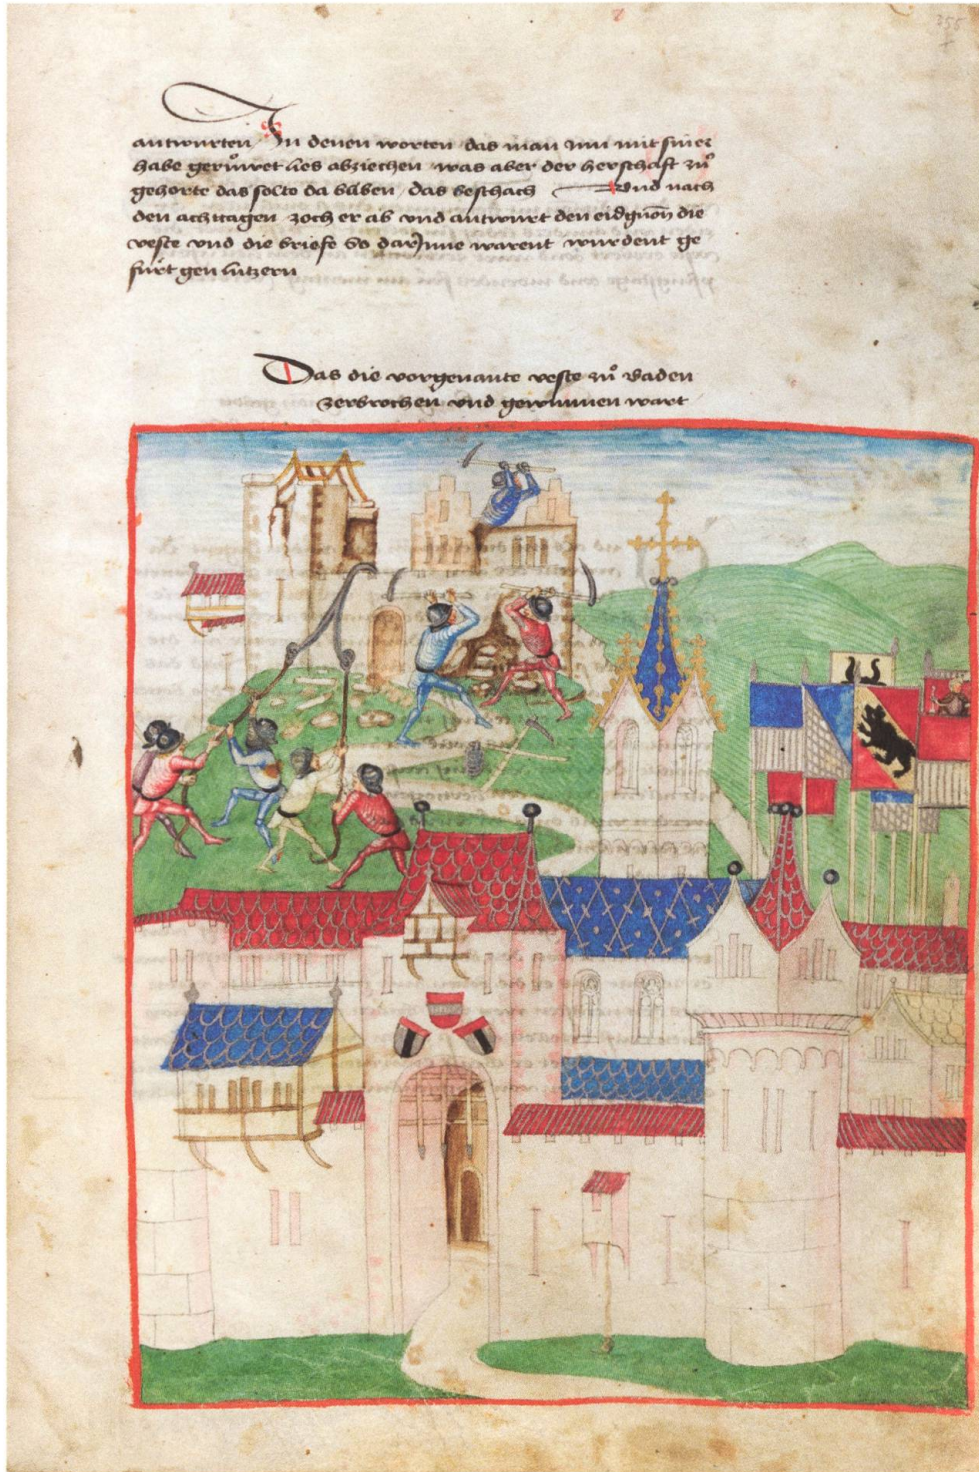 356
antwurten In denen worten das man inn mit siner
habe gerůwet lies abziechen was aber der herschaft zů
gehorte das solto da bliben das beschach Und nach
den achttagen zoch er ab und antwurt den eidgnon die
veste und die briefe so darInne warent wurdent ge
fürt gen lutzern
Das die vorgenante veste zů Baden
zerbrochen und gewunnen wart